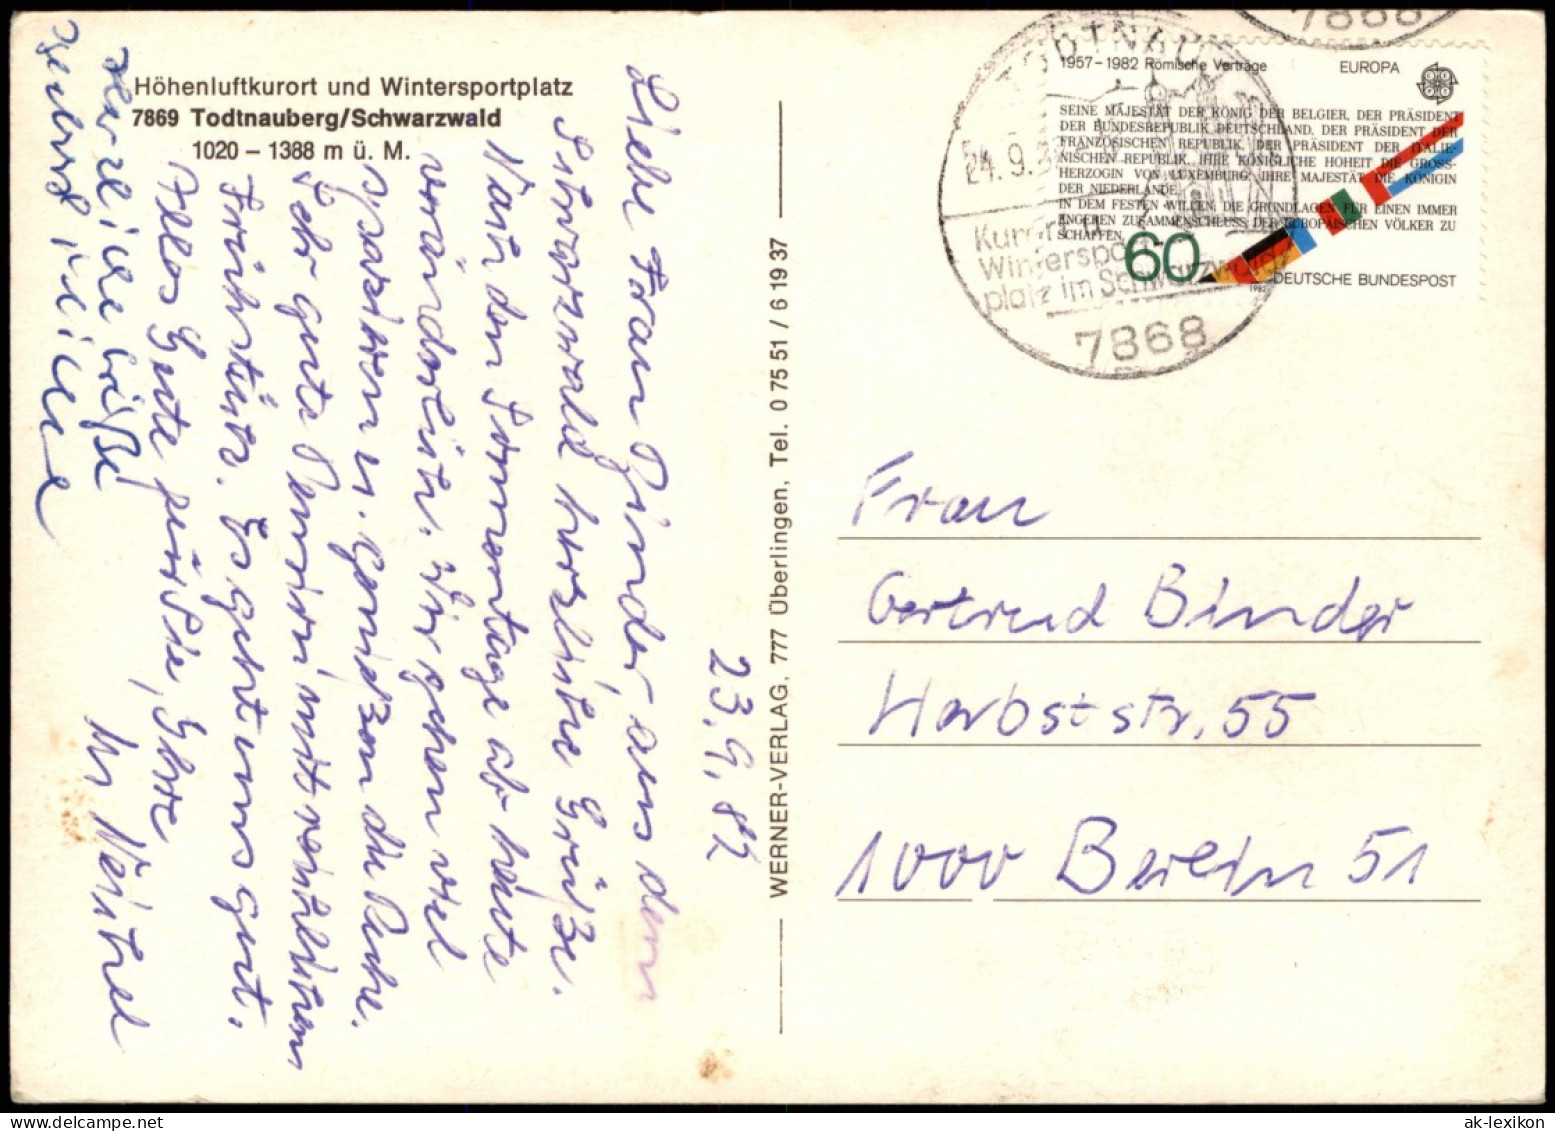 Höhenluftkurort und Wintersportplatz
7869 Todtnauberg/Schwarzwald
1020 – 1388 m ü. M.
23.9.82
Liebe Frau Binder, aus dem
Schwarzwald herzliche Grüße.
Nach den Sonnentage ab heute
veränderlich. Wir gehen viel
spazieren u. genießen die Ruhe.
Sehr gute Pension mit reichlichem
Frühstück. Es geht uns gut.
Alles Gute für Sie, Ihre
Herzliche Grüße
WERNER-VERLAG, 777 Überlingen, Tel. 0 75 51 / 6 19 37
TODTNAU
24.9.
Kurort u.
Wintersport-
platz im Schwarzwald
7868
7868
1957–1982 Römische Verträge
EUROPA
SEINE MAJESTÄT DER KÖNIG DER BELGIER, DER PRÄSIDENT
DER BUNDESREPUBLIK DEUTSCHLAND, DER PRÄSIDENT DER
FRANZÖSISCHEN REPUBLIK, DER PRÄSIDENT DER ITALIE-
NISCHEN REPUBLIK, IHRE KÖNIGLICHE HOHEIT DIE GROSS-
HERZOGIN VON LUXEMBURG, IHRE MAJESTÄT DIE KÖNIGIN
DER NIEDERLANDE,
IN DEM FESTEN WILLEN, DIE GRUNDLAGEN FÜR EINEN IMMER
ENGEREN ZUSAMMENSCHLUSS DER EUROPÄISCHEN VÖLKER ZU
SCHAFFEN,
60
1982
DEUTSCHE BUNDESPOST
Frau
Gertrud Binder
Herbststr. 55
1000 Berlin 51
ak-lexikon.com